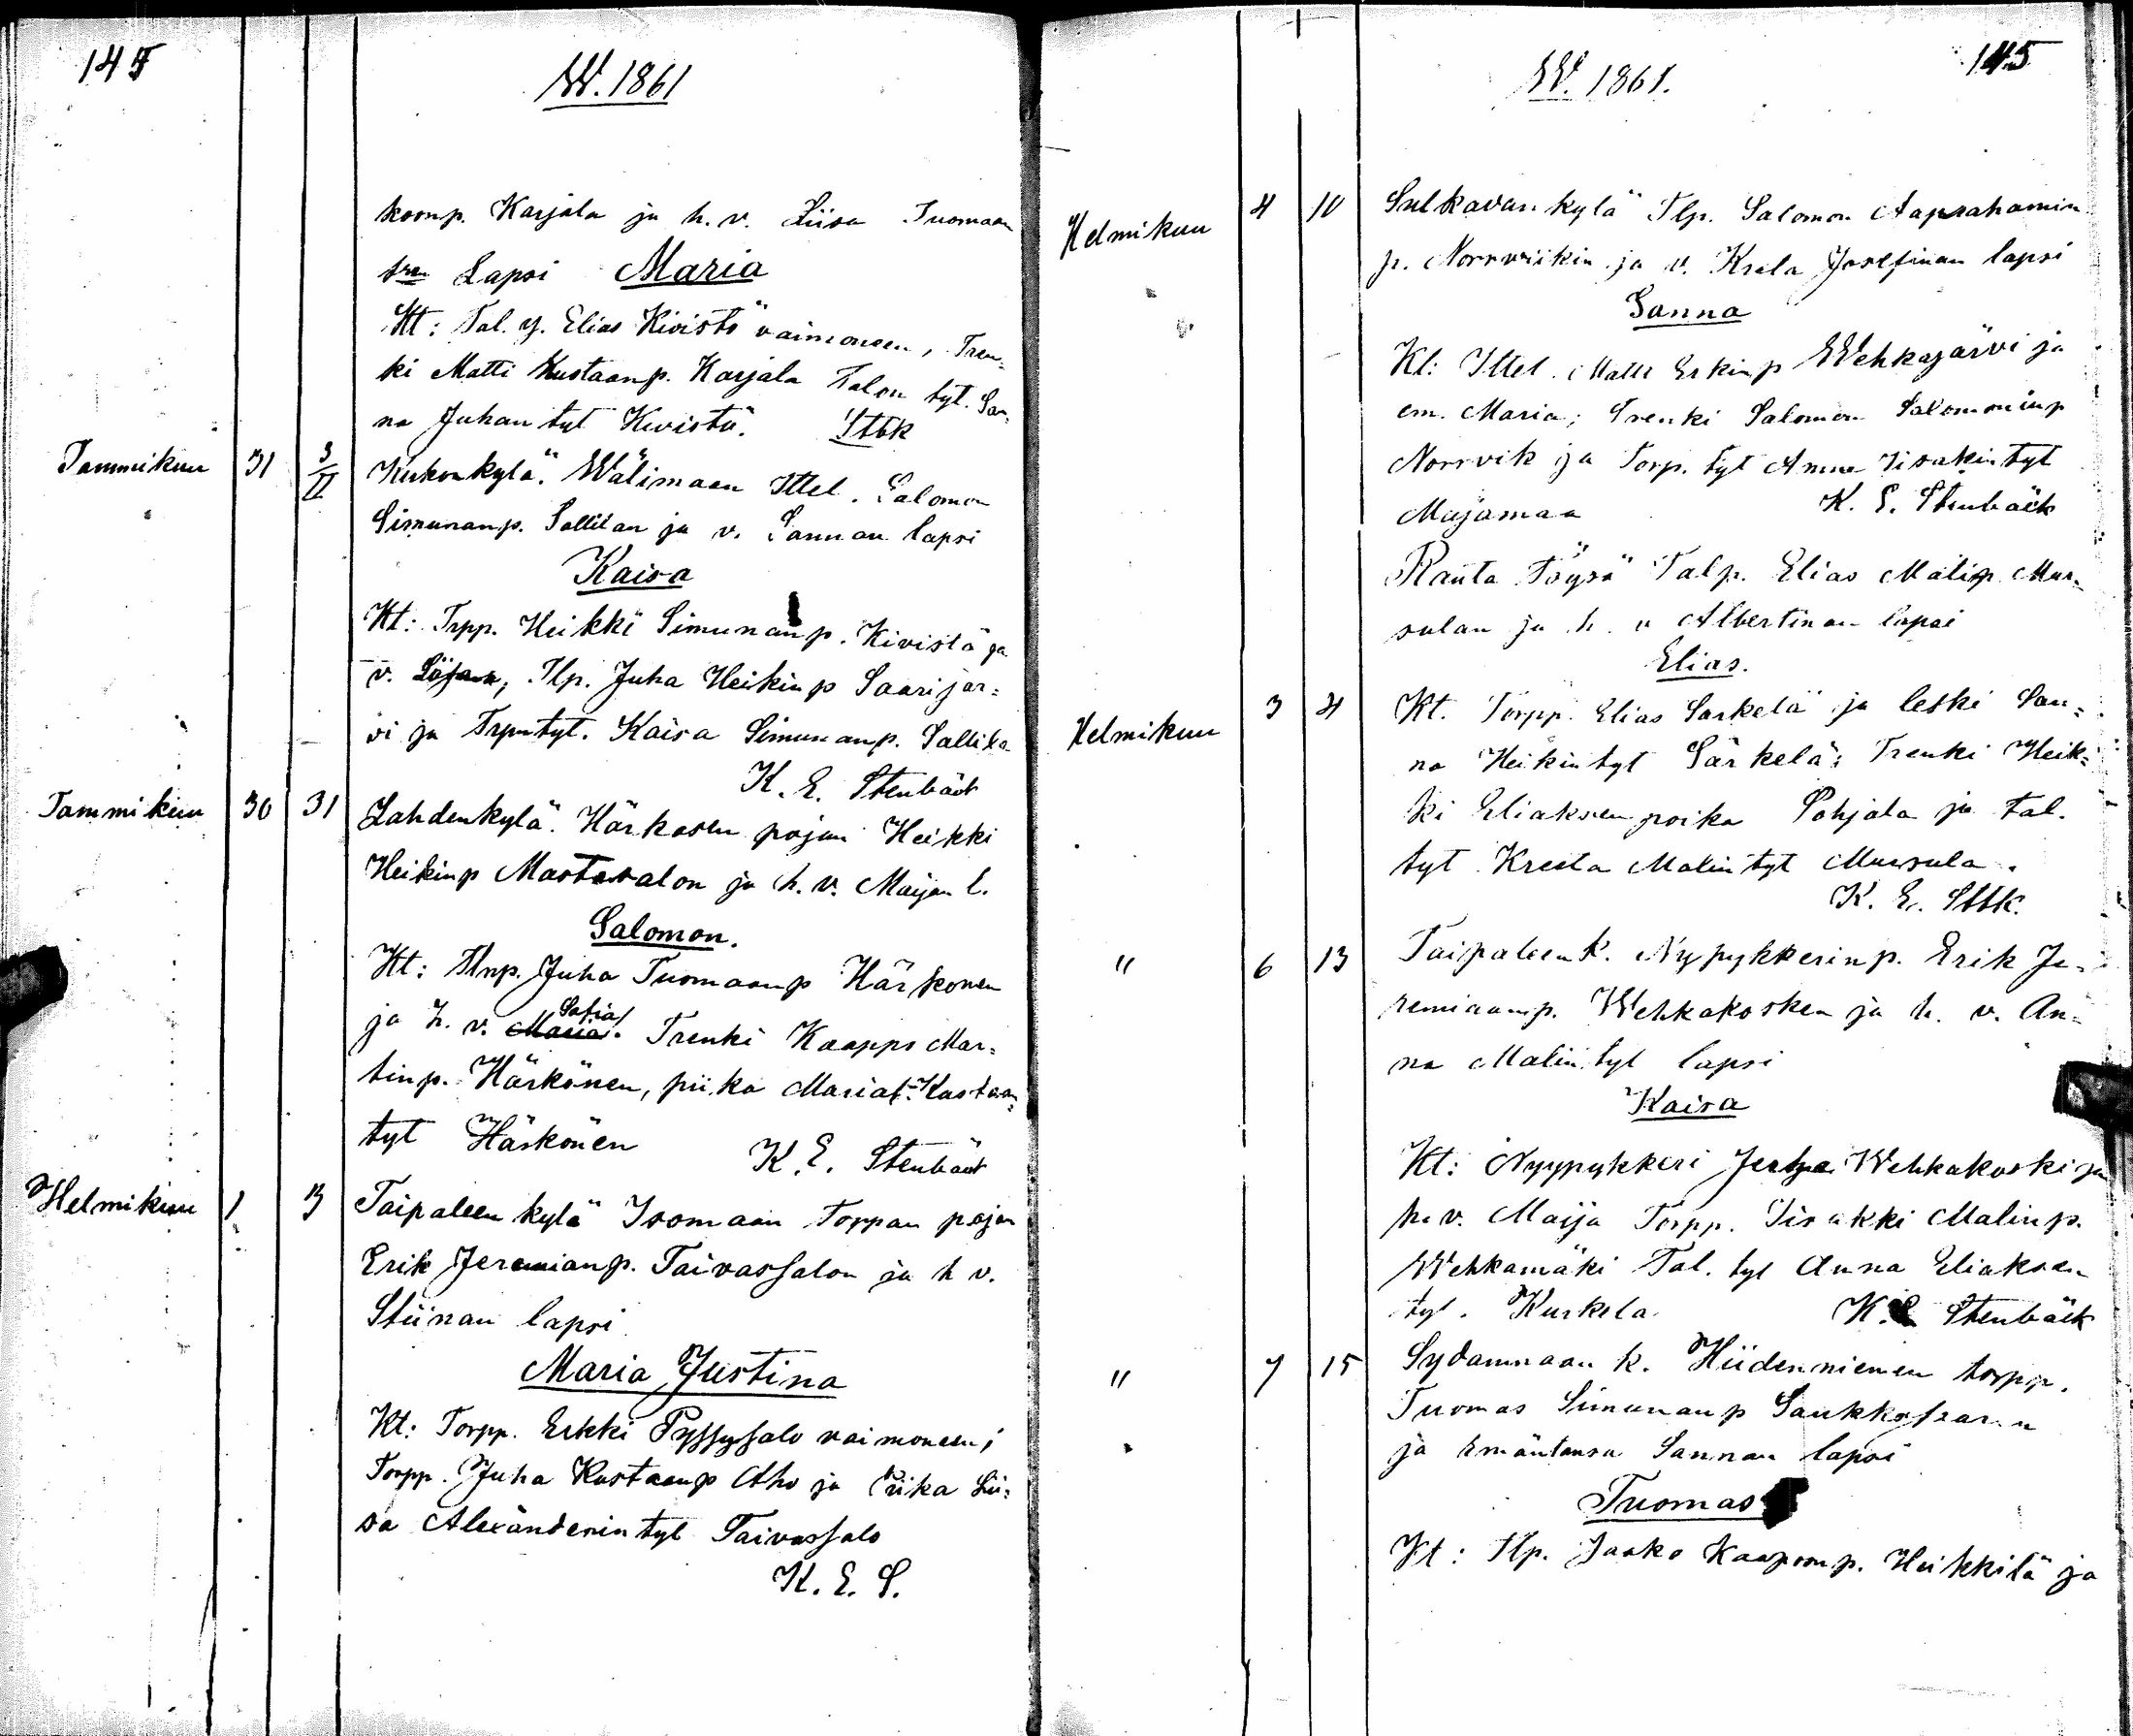 145
W. 1861
koonp. Karjala ja h. v. Liisa Tuomaan
tren Lapsi Maria
Kt: Tal. y. Elias Kivistö vaimoneen, Tren-
ki Matti Kustaanp. Karjala Talon tyt. San-
na Juhan tyt Kivistö. Stbk
Tammikuu 31 3/II Kukonkylä. Wälimaan Ittel. Salomon
Simunanp. Sallilan ja v. Sannan lapsi
Kaisa
Kt: Trpp. Heikki Simunanp. Kivistö ja
v. Tlp. Juha Heikinp Saarijär=
vi ja Trpntyt. Kaisa Simunanp. Sallila
K. E. Stenbäck
Tammikuu 30 31 Lahdenkylä. Härkösen pojan Heikki
Heikinp Mastosalon ja h. v. Maijan l.
Salomon.
Kt: Tlnp. Juha Tuomaanp Härkönen
ja h. v. Maria Sofia. Trenki Kaappo Mar=
tinp. Härkönen, piika Maria Kustaan=
tyt Härkönen K. E. Stenbäck
Helmikuu 1 3 Taipaleen kylä Isomaan Torpan pojan
Erik Jeremianp. Taivassalon ja h v.
Stiinan lapsi
Maria Justina
Kt: Torpp. Erkki Pyssysalo vaimoneen;
Torpp. Juha Kustaanp Aho ja Piika Lii=
sa Alexanderin tyt Taivassalo
K. E. S.
145
W. 1861.
Helmikuu 4 10 Sulkavankylä Tlp. Salomon Aaprahamin
p. Norrviikin ja v. Josefinan lapsi
Sanna
Kt: Ittel. Matti Erkinp Wehkajärvi ja
em. Maria; Trenki Salomon Salomoninp
Norrvik ja Torp. tyt Anna Iisakin tyt
Majamaa K. E. Stenbäck
Ranta Töysä Talp. Elias Matinp. Mur-
sulan ja h. v Albertinan lapsi
Elias.
Helmikuu 3 4 Kt. Torpp. Elias Särkelä ja leski San=
na Heikin tyt Särkelä; Trenki Heik=
ki Eliaksen poika Pohjala ja tal.
tyt Kreeta Malin tyt Mursula.
K. E. Stbk.
" 6 13 Taipaleen k. Nypykkerinp. Erik Je-
remiaanp. Wehkakosken ja h. v. An=
na Malin tyt lapsi
Kaisa
Kt: Nyypykkeri Wehkakoski ja
h. v. Maija Torpp. Iisakki Malinp.
Wehkamäki Tal. tyt Anna Eliaksen
tyt. Kurkela K. E. Stenbäck
" 7 15 Sydänmaan k. Hiidenniemen torpp.
Tuomas Simunanp
ja Emäntänsä Sannan lapsi
Tuomas
Kt: Tlp. Jaako Kaaponp. Heikkilä ja